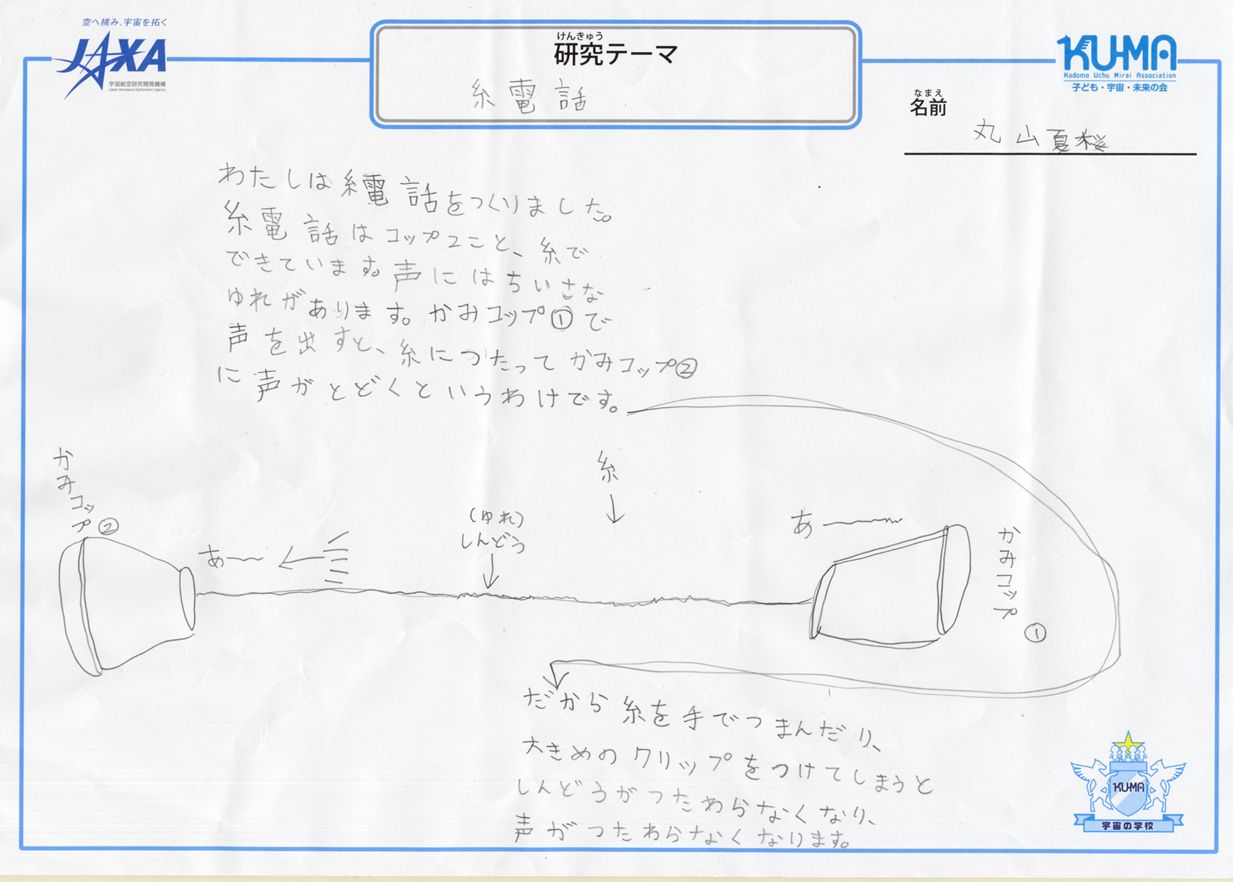 空へ挑み、宇宙を拓く
JAXA
宇宙航空研究開発機構
Japan Aerospace Exploration Agency
けんきゅう
研究テーマ
糸電話
KU-MA
Kodomo Uchu Mirai Association
子ども・宇宙・未来の会
なまえ
名前
丸山夏桜
わたしは糸電話をつくりました。
糸電話はコップ2こと、糸で
できています。声にはちいさな
ゆれがあります。かみコップ①で
声を出すと、糸につたってかみコップ②
に声がとどくというわけです。
かみコップ②
あー
(ゆれ)
しんどう
糸
あー
かみコップ①
だから糸を手でつまんだり、
大きめのクリップをつけてしまうと
しんどうがつたわらなくなり、
声がつたわらなくなります。
KU-MA
宇宙の学校